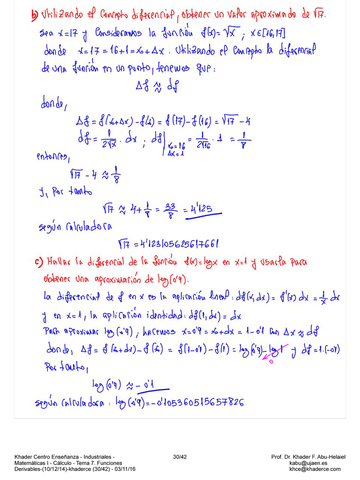 b) Utilizando el concepto diferencial, obtener un valor aproximado de √17.
Sea x=17 y consideramos la función f(x)=√x ; x∈[16,17]
donde x=17=16+1=x₀+Δx. Utilizando el concepto la diferencial
de una función en un punto, tenemos que:
Δf ≈ df
donde,
Δf = f(x₀+Δx)-f(x₀) = f(17)-f(16) = √17 - 4
df = 1/(2√x) · dx ; df|x₀=16 Δx=1 = 1/(2√16) · 1 = 1/8
entonces,
√17 - 4 ≈ 1/8
y, por tanto
√17 ≈ 4 + 1/8 = 33/8 = 4'125
según calculadora
√17 = 4'123105625617661
c) Hallar la diferencial de la función f(x)=log x en x=1 y usarla para
obtener una aproximación de log(0'9).
La diferencial de f en x es la aplicación lineal: df(x,dx) = f'(x) dx = 1/x dx
y en x=1, la aplicación identidad: df(1,dx) = dx
Para aproximar log(0'9), hacemos x=0'9=x₀+dx=1-0'1 con Δx ≈ df
donde, Δf = f(x₀+dx)-f(x₀) = f(1-0'1)-f(1) = log(0'9)-log 1 y df = 1·(-0'1)
0
Por tanto,
log(0'9) ≈ -0'1
según calculadora: log(0'9) = -0'105360515657826
Khader Centro Enseñanza - Industriales - 30/42 Prof. Dr. Khader F. Abu-Helaiel
Matemáticas I - Cálculo - Tema 7. Funciones kabu@ujaen.es
Derivables-(10/12/14)-khaderce (30/42) - 03/11/16 khce@khaderce.com